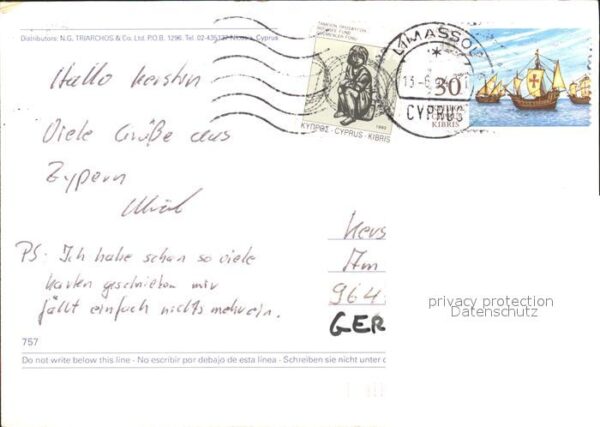 Distributors: N.G. TRIARCHOS & Co. Ltd. P.O.B. 1296. Tel. 02-435137 Cyprus
Hallo Kerstin
Viele Grüße aus
Zypern
PS: Ich habe schon so viele
Karten geschrieben mir
fällt einfach nichts mehr ein.
757
REFUGEE FUND
ΚΥΠΡΟΣ - CYPRUS - KIBRIS
LIMASSOL
CYPRUS
30
KIBRIS
Kers
Am
964
GER
privacy protection
Datenschutz
Do not write below this line - No escribir por debajo de esta línea - Schreiben sie nicht unter